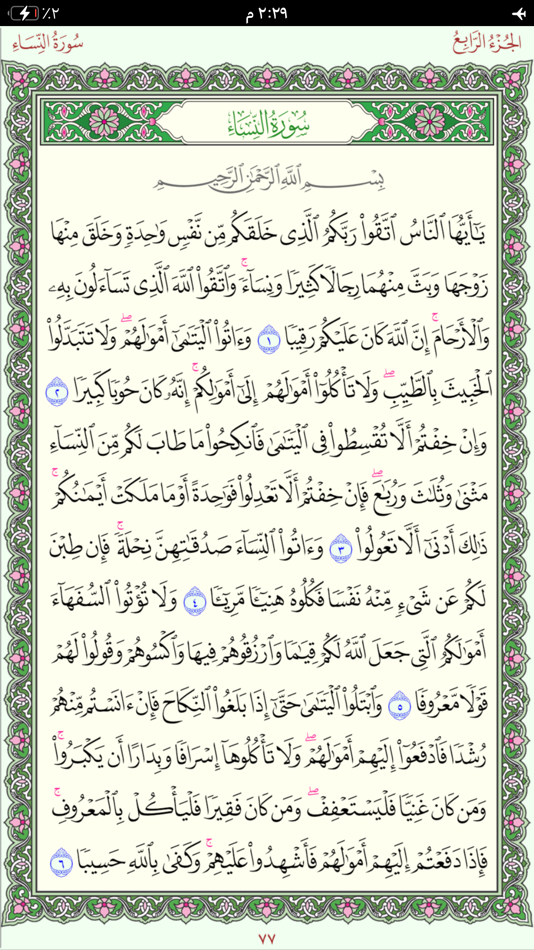 ٪٢
٢:٢٩ م
سُورَةُ النِّسَاءِ
الجُزْءُ الرَّابِعُ
سُورَةُ النِّسَاءِ
بِسْمِ ٱللَّهِ ٱلرَّحْمَٰنِ ٱلرَّحِيمِ
يَـٰٓأَيُّهَا ٱلنَّاسُ ٱتَّقُوا۟ رَبَّكُمُ ٱلَّذِى خَلَقَكُم مِّن نَّفْسٍ وَٰحِدَةٍ وَخَلَقَ مِنْهَا
زَوْجَهَا وَبَثَّ مِنْهُمَا رِجَالًا كَثِيرًا وَنِسَآءً ۚ وَٱتَّقُوا۟ ٱللَّهَ ٱلَّذِى تَسَآءَلُونَ بِهِۦ
وَٱلْأَرْحَامَ ۚ إِنَّ ٱللَّهَ كَانَ عَلَيْكُمْ رَقِيبًا ١ وَءَاتُوا۟ ٱلْيَتَـٰمَىٰٓ أَمْوَٰلَهُمْ ۖ وَلَا تَتَبَدَّلُوا۟
ٱلْخَبِيثَ بِٱلطَّيِّبِ ۖ وَلَا تَأْكُلُوٓا۟ أَمْوَٰلَهُمْ إِلَىٰٓ أَمْوَٰلِكُمْ ۚ إِنَّهُۥ كَانَ حُوبًا كَبِيرًا ٢
وَإِنْ خِفْتُمْ أَلَّا تُقْسِطُوا۟ فِى ٱلْيَتَـٰمَىٰ فَٱنكِحُوا۟ مَا طَابَ لَكُم مِّنَ ٱلنِّسَآءِ
مَثْنَىٰ وَثُلَـٰثَ وَرُبَـٰعَ ۖ فَإِنْ خِفْتُمْ أَلَّا تَعْدِلُوا۟ فَوَٰحِدَةً أَوْ مَا مَلَكَتْ أَيْمَـٰنُكُمْ ۚ
ذَٰلِكَ أَدْنَىٰٓ أَلَّا تَعُولُوا۟ ٣ وَءَاتُوا۟ ٱلنِّسَآءَ صَدُقَـٰتِهِنَّ نِحْلَةً ۚ فَإِن طِبْنَ
لَكُمْ عَن شَىْءٍ مِّنْهُ نَفْسًا فَكُلُوهُ هَنِيٓـًٔا مَّرِيٓـًٔا ٤ وَلَا تُؤْتُوا۟ ٱلسُّفَهَآءَ
أَمْوَٰلَكُمُ ٱلَّتِى جَعَلَ ٱللَّهُ لَكُمْ قِيَـٰمًا وَٱرْزُقُوهُمْ فِيهَا وَٱكْسُوهُمْ وَقُولُوا۟ لَهُمْ
قَوْلًا مَّعْرُوفًا ٥ وَٱبْتَلُوا۟ ٱلْيَتَـٰمَىٰ حَتَّىٰٓ إِذَا بَلَغُوا۟ ٱلنِّكَاحَ فَإِنْ ءَانَسْتُم مِّنْهُمْ
رُشْدًا فَٱدْفَعُوٓا۟ إِلَيْهِمْ أَمْوَٰلَهُمْ ۖ وَلَا تَأْكُلُوهَآ إِسْرَافًا وَبِدَارًا أَن يَكْبَرُوا۟ ۚ
وَمَن كَانَ غَنِيًّا فَلْيَسْتَعْفِفْ ۖ وَمَن كَانَ فَقِيرًا فَلْيَأْكُلْ بِٱلْمَعْرُوفِ ۚ
فَإِذَا دَفَعْتُمْ إِلَيْهِمْ أَمْوَٰلَهُمْ فَأَشْهِدُوا۟ عَلَيْهِمْ ۚ وَكَفَىٰ بِٱللَّهِ حَسِيبًا ٦
٧٧